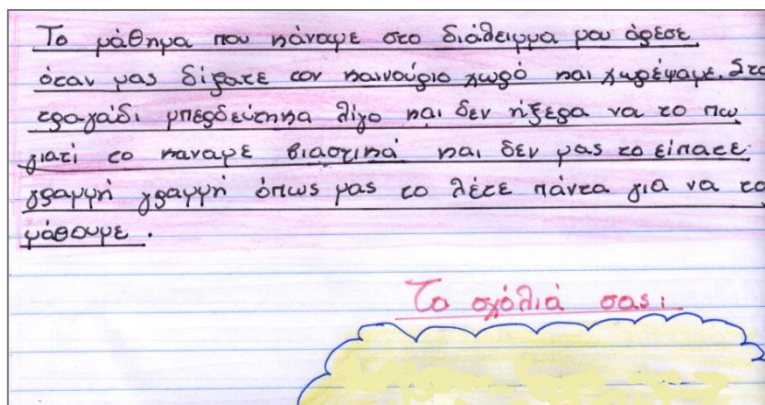 Το μάθημα που κάναμε στο διάλειμμα μου άρεσε
όταν μας δίξατε τον καινούριο χωρό και χωρέψαμε. Στο
τραγάδι μπερδεύτηκα λίγο και δεν ήξερα να το πω
γιατί το καναμε βιαστικά και δεν μας το είπατε
γραμμή γραμμή όπως μας το λέτε πάντα για να το
μάθουμε.
Τα σχόλιά σας: